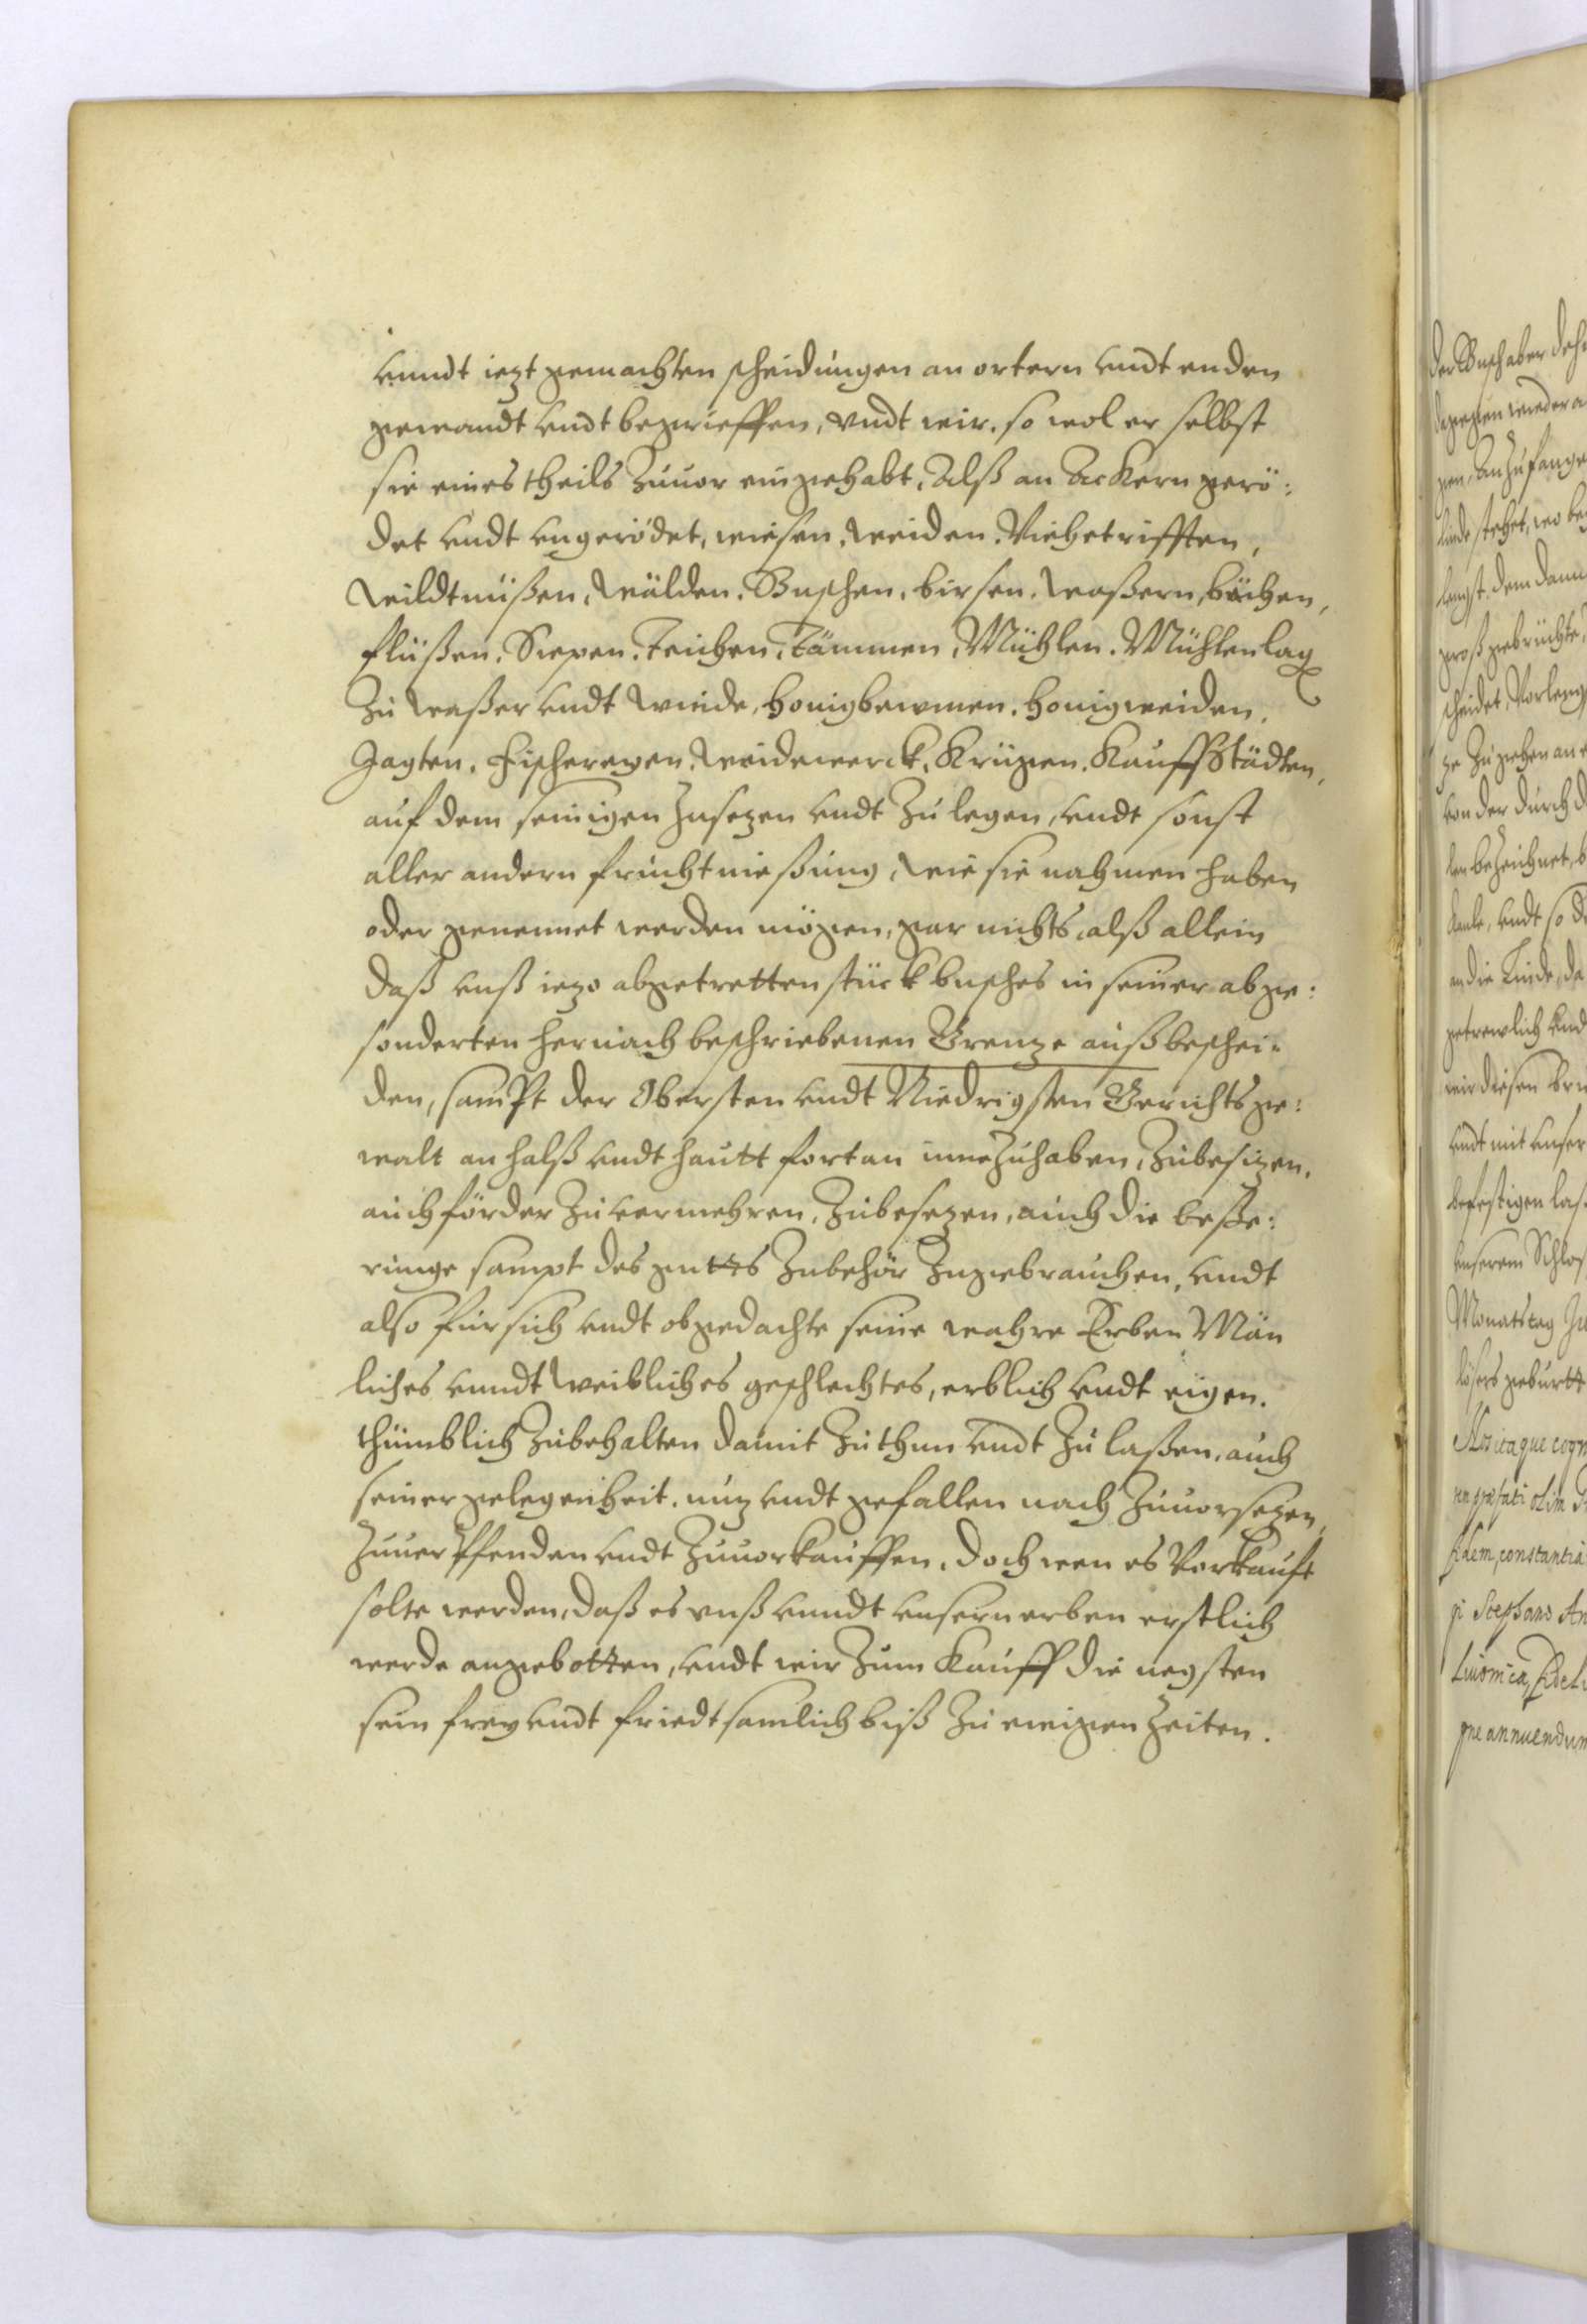 vnndt iezt gemachten scheidungen an ortern vndt enden
gewandt vndt begrieffen, vndt wir, so wol er selbst
sie eines theils Zuuor eingehabt, Alß an Ackern gerö:
det vndt vngerödet, wiesen, Weiden, Viehetrifften,
Wildtnüßen, Wälden, Buschen, birsen, Waßern, bächen,
flüßen, Siepen, Teichen, Tämmen, Mühlen, Mühlenlag
Zu Waßer vndt Winde, honigbewmen, honigweiden,
Jagten, Fischereyen, Weidewerck, Krügen, KauffStädten,
auf dem seinigen Zusezen vndt Zu legen, vndt sonst
aller andern fruchtnießung, Wie sie nahmen haben
oder genennet werden mögen, gar nichts, alß allein
daß vnß iezo abgetretten stück busches in seiner abge:
sonderten hernach beschriebenen Grenze außbeschei:
den, sampt der Obersten vndt Niedrigsten Gerichtsge:
walt an halß vndt hautt fortan inneZuhaben, Zubesizen,
auch förder Zu vermehren, Zubesezen, auch die beße:
runge sampt des guttes Zubehör Zugebrauchen, vndt
also für sich vndt obgedachte seine wahre Erben Män
liches vnndt Weibliches geschlechtes, erblich vndt eigen:
thümblich Zubehalten damit Zuthun vndt Zu laßen, auch
seiner gelegenheit, nuz vndt gefallen nach Zuuorsezen,
Zuuerpfenden vndt Zuuorkauffen, doch wen es Vorkauft
solte werden, daß es vnß vnndt vnsern erben erstlich
werde angebotten, vndt wir Zum Kauff die negsten
sein frey vndt friedtsamlich biß Zu ewigen Zeiten.